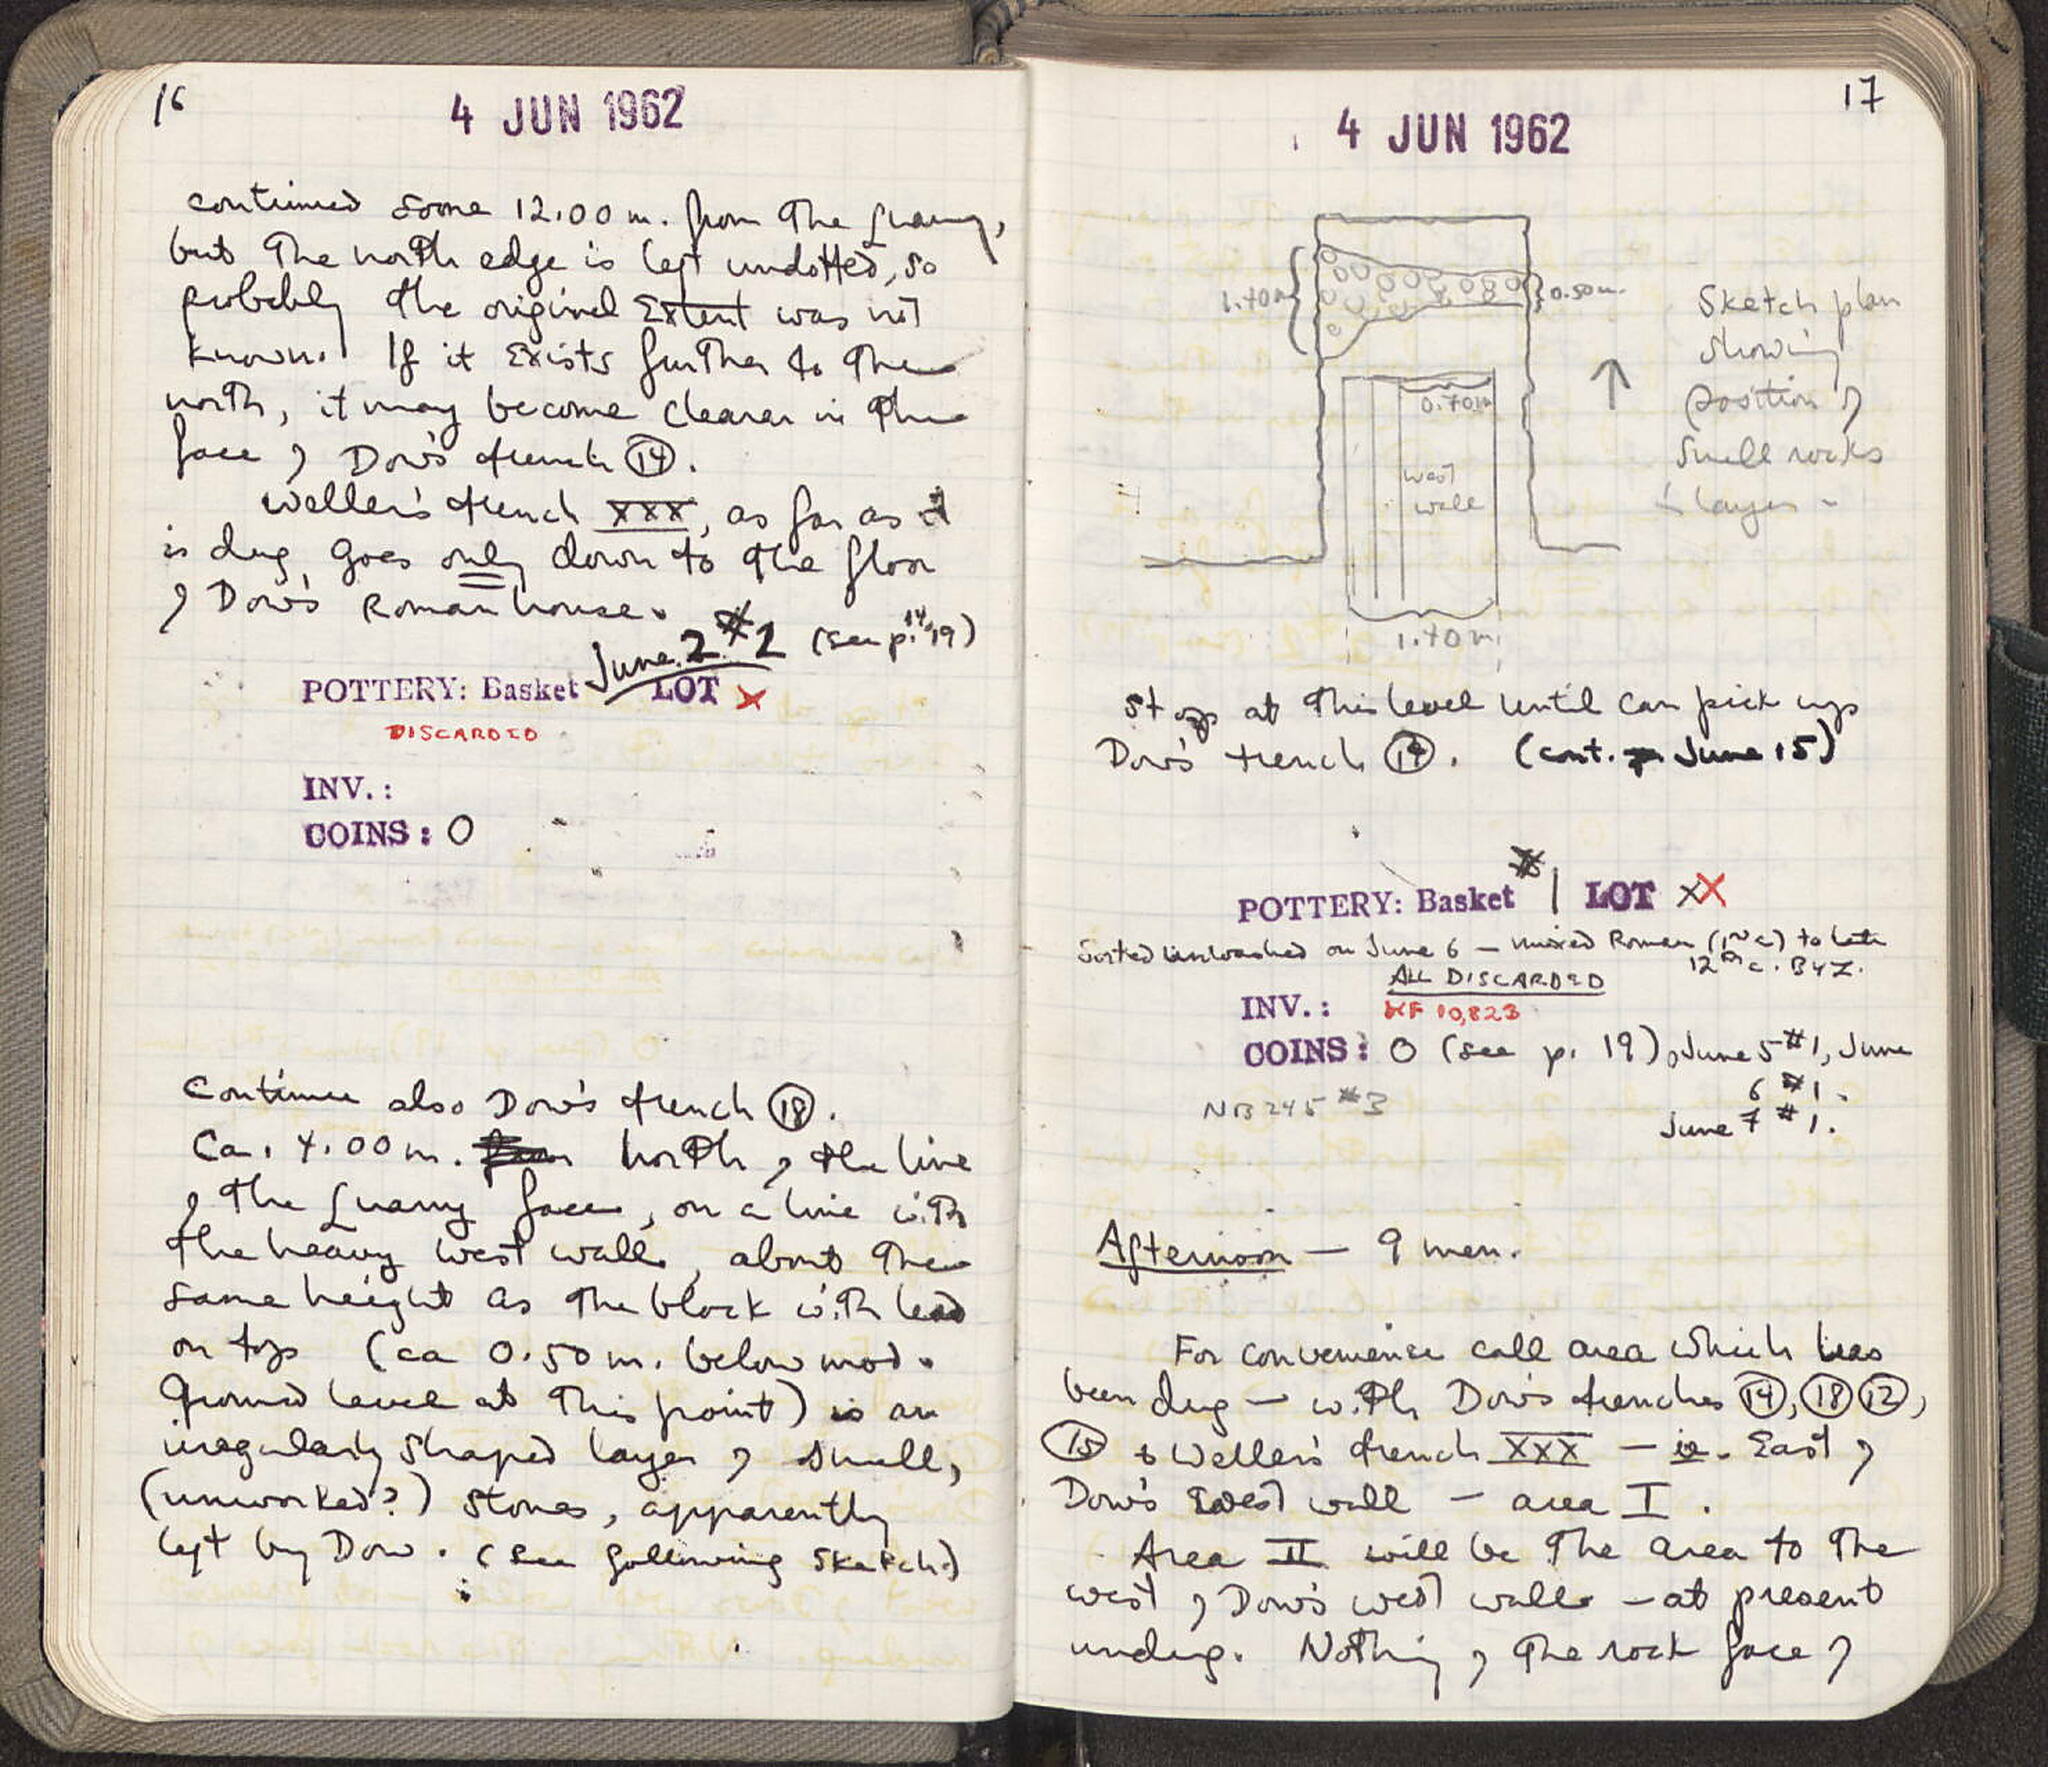 16
4 JUN 1962
continued some 12.00 m. from the quarry,
but the north edge is left undotted, so
probably the original extent was not
known. If it exists further to the
north, it may become clearer in the
face of Dow's trench (14).
Weller's trench XXX, as far as it
is dug, goes only down to the floor
of Dow's Roman house.
June 2 #2 (see p. 14, 19)
POTTERY: Basket LOT X
DISCARDED
INV.:
COINS: 0
Continue also Dow's trench (18).
Ca. 4.00 m. north of the line
of the quarry face, on a line with
the heavy west wall, about the
same height as the block with lead
on top (ca 0.50 m. below mod.
ground level at this point) is an
irregularly shaped layer of small,
(unworked?) stones, apparently
left by Dow. (see following sketch.)
17
4 JUN 1962
1.40m
0.50m.
0.70m
west
wall
1.40 m.
Sketch plan
showing
position of
small rocks
layer -
stop at this level until can pick up
Dow's trench (14). (cont. June 15)
POTTERY: Basket #1 LOT XX
Sorted unwashed on June 6 — mixed Roman (1st c) to late
12th c. Byz.
ALL DISCARDED
INV.: MF 10,823
COINS: 0 (see p. 19), June 5 #1, June
6 #1.
June 7 #1.
NB 245 #3
Afternoon — 9 men.
For convenience call area which has
been dug — with Dow's trenches (14), (18) (12),
(15) & Weller's trench XXX — ie. East of
Dow's west wall — area I.
Area II will be the area to the
west of Dow's west wall — at present
undug. Nothing of the rock face of